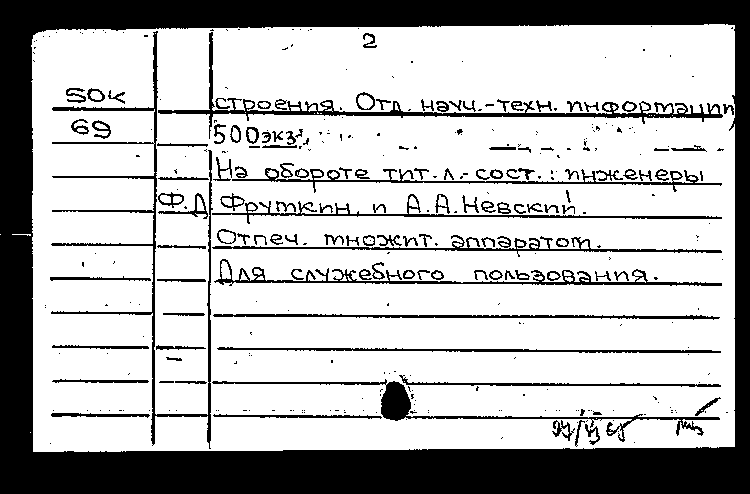 2
50К строения. Отд. науч.-техн. информации)
69 500экз.
На обороте тит.л.-сост.: инженеры
Ф.Д Фруткин и А.А.Невский.
Отпеч. множит. аппаратом.
Для служебного пользования.